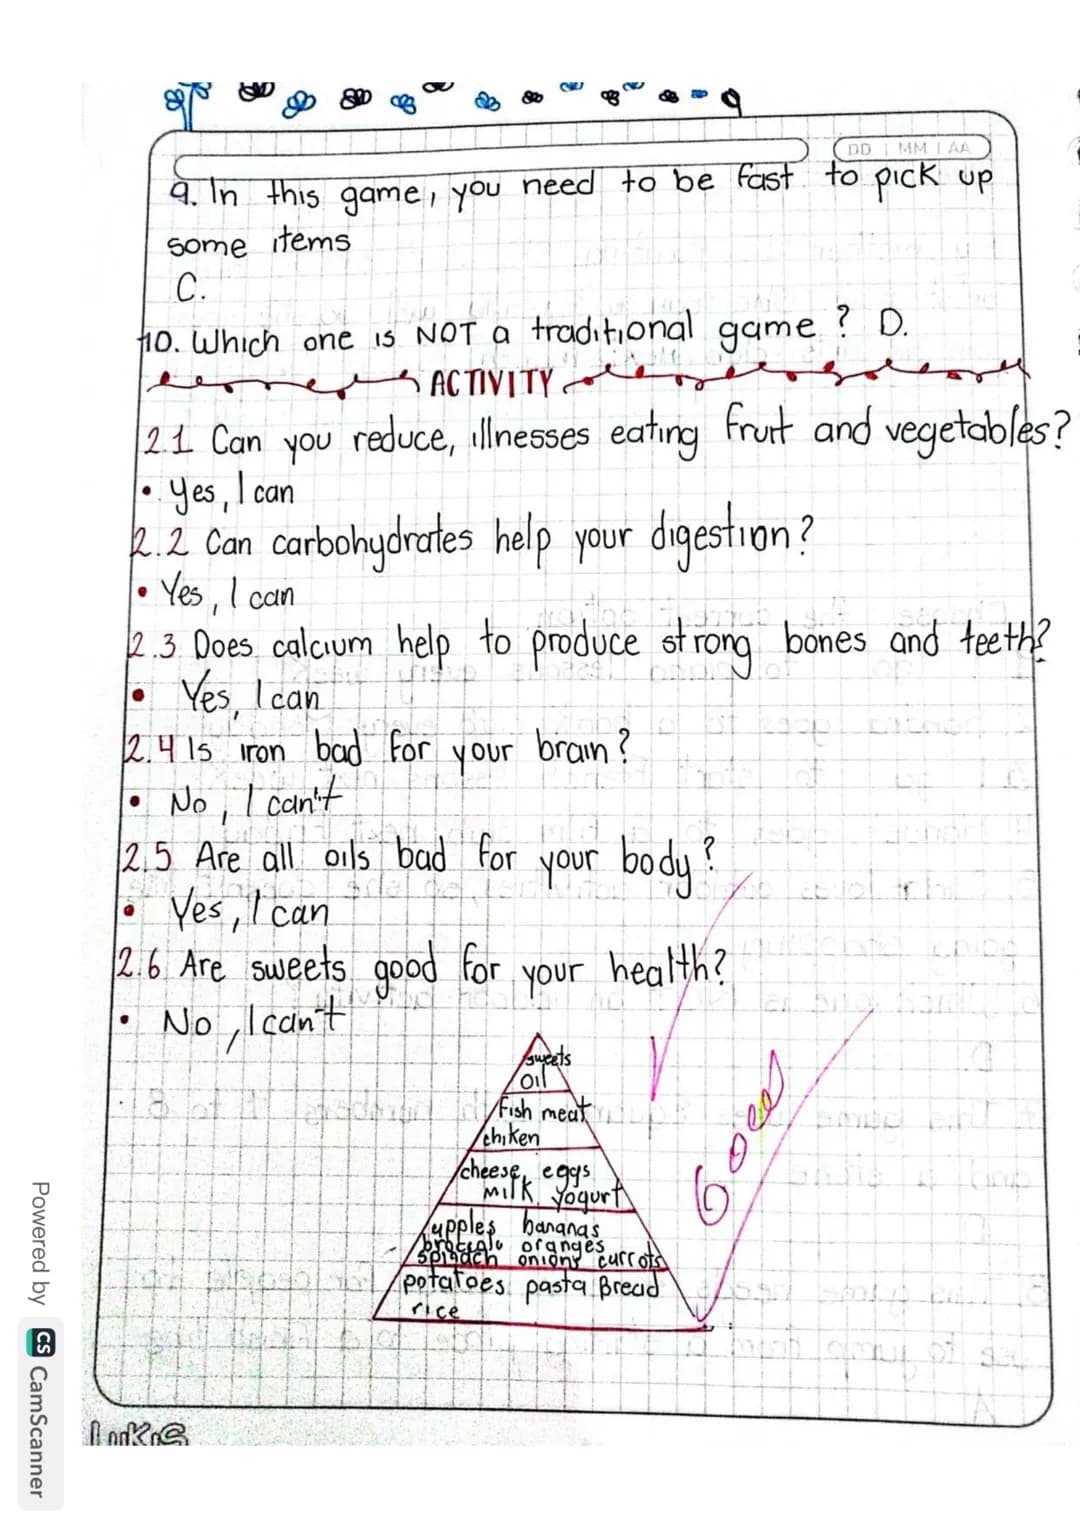 DD MM AA
9. In this game, you need to be fast to pick up
some items
C.
10. Which one is NOT a traditional game? D.
ACTIVITY
2.1 Can you reduce, illnesses eating fruit and vegetables?
• Yes, I can
2.2 Can carbohydrates help your digestion?
• Yes, I can
2.3 Does calcium help to produce strong bones and teeth?
• Yes, I can
2.4 Is iron bad for your brain?
• No, I can't
2.5 Are all oils bad for your body?
• Yes, I can
2.6 Are sweets good for your health?
• No, I can't
sweets
oil
Fish meat
chiken
cheese, eggs
milk yogurt
apples bananas
oranges
spinach onions carrots
potatoes pasta Bread
rice
Good
Powered by CS CamScanner